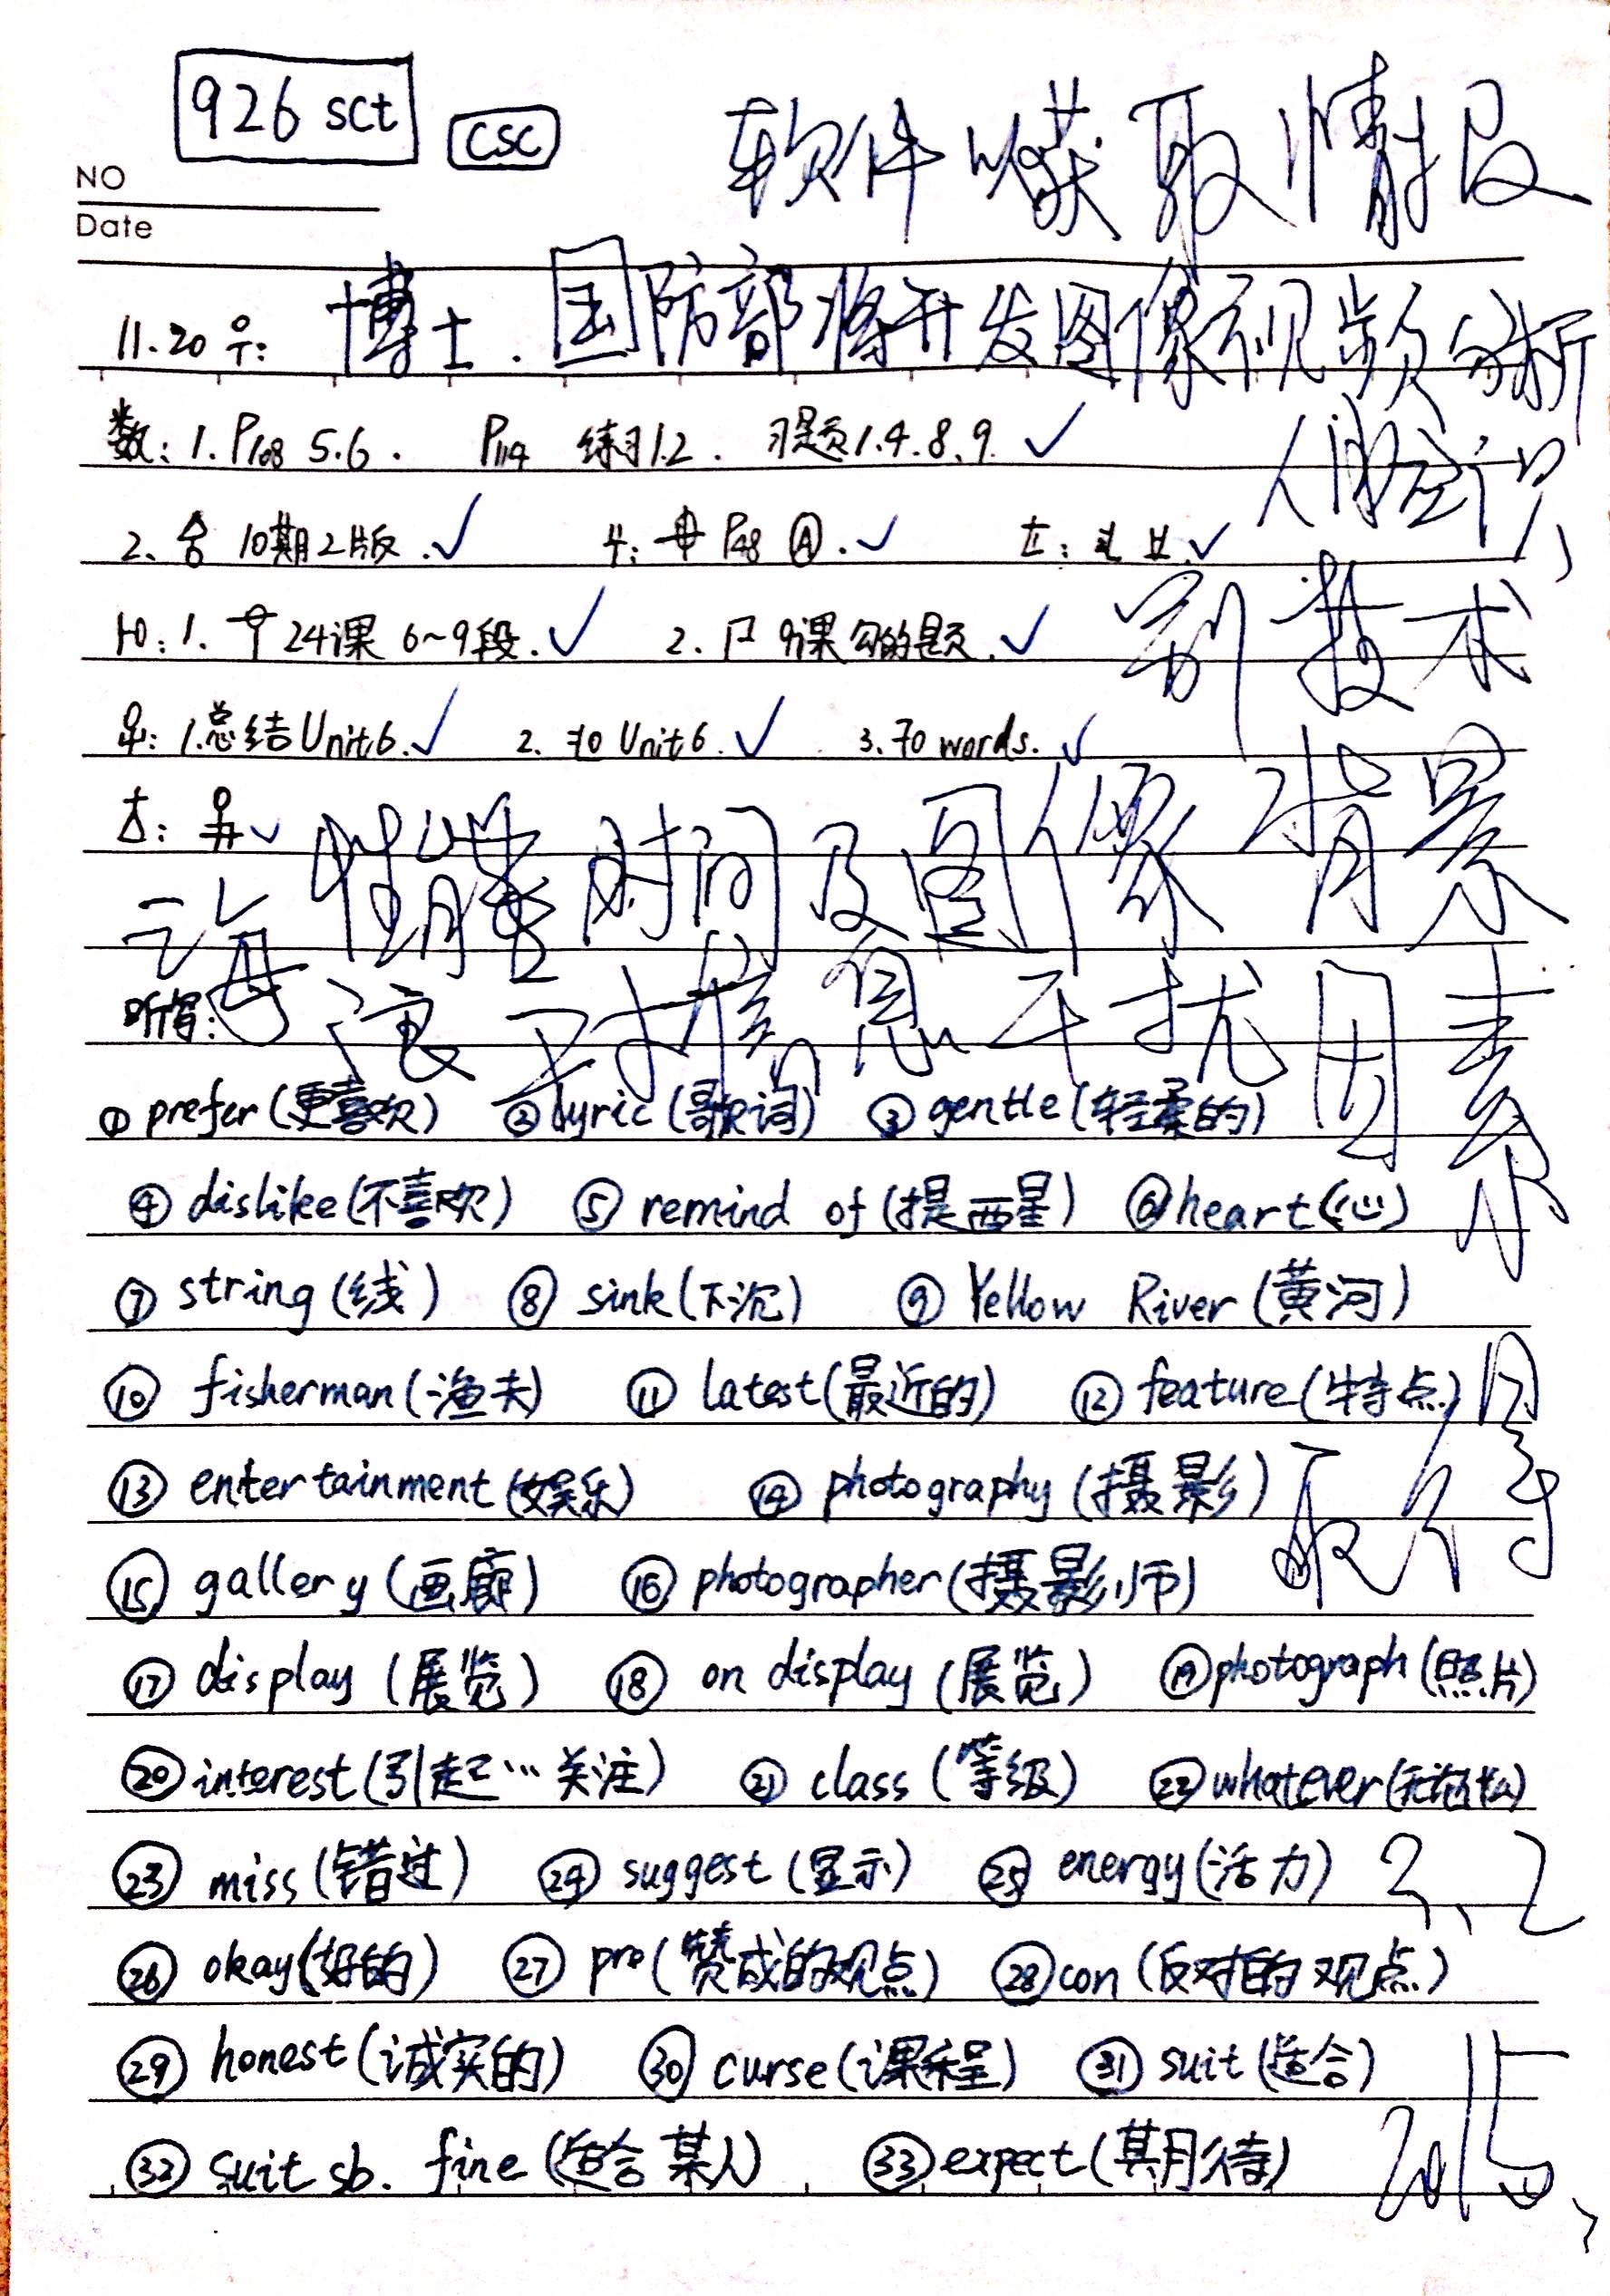 926 sct
csc
软件 获取情报
NO
Date
11.20号: 博士.国防部将开发图像视频分析
数: 1. P108 5.6. P114 练习1.2. 习题1.4.8.9.
人的意识
2. 10期2版. P48 Ⓐ.
别技术
1. 24课 6~9段. 2. 9课 勾的题.
1.总结Unit6. 2. Unit6. 3. 70 words.
时间及图像背景
海浪 对信息干扰因素
听写:
① prefer(更喜欢) ② lyric(歌词) ③ gentle(轻柔的)
④ dislike(不喜欢) ⑤ remind of(提醒) ⑥ heart(心)
⑦ string(线) ⑧ sink(下沉) ⑨ Yellow River(黄河)
⑩ fisherman(渔夫) ⑪ latest(最近的) ⑫ feature(特点)
⑬ entertainment(娱乐) ⑭ photography(摄影)
取得
⑮ gallery(画廊) ⑯ photographer(摄影师)
⑰ display(展览) ⑱ on display(展览) ⑲ photograph(照片)
⑳ interest(引起…关注) ㉑ class(等级) ㉒ whatever(无论什么)
㉓ miss(错过) ㉔ suggest(显示) ㉕ energy(活力)
㉖ okay(好的) ㉗ pro(赞成的观点) ㉘ con(反对的观点)
㉙ honest(诚实的) ㉚ curse(课程) ㉛ suit(适合)
㉜ suit sb. fine(适合某人) ㉝ expect(期待)